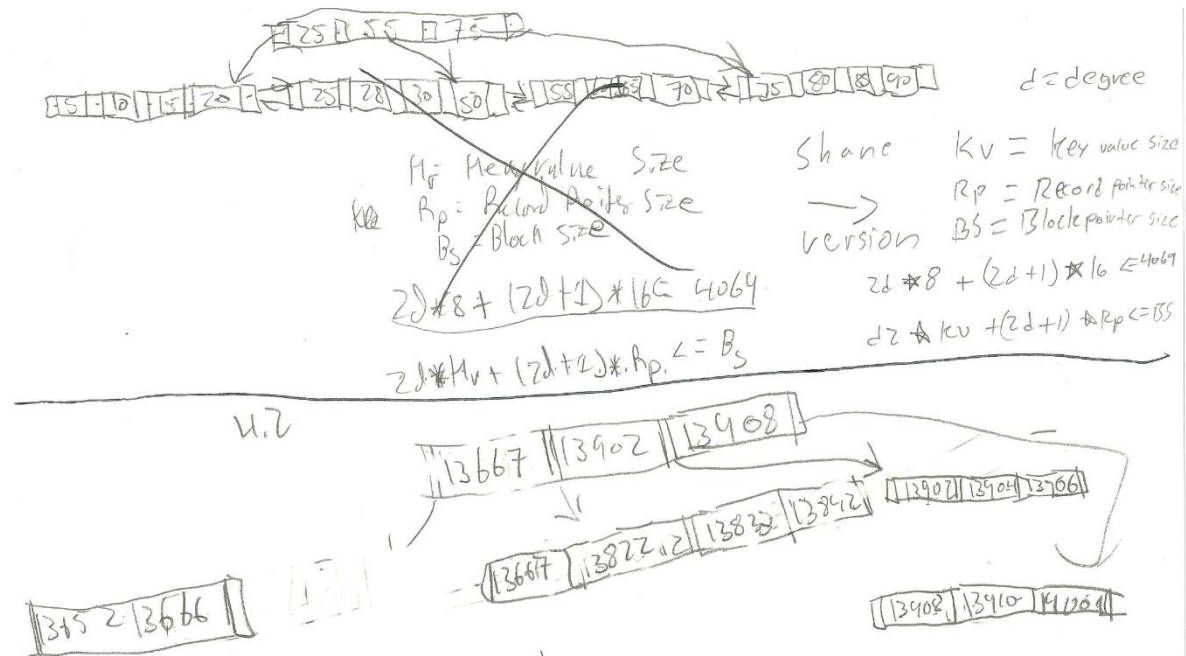 25 55 75
5 10 15 20 25 28 30 50 55 65 70 75 80 85 90
d = degree
Size
Rp = Record Size
Bs = Block size
2d*8 + (2d+1)*16 <= 4069
2d*Hv + (2d+1)*Rp <= Bs
Shane
→
version
Kv = Key value size
Rp = Record pointer size
BS = Block pointer size
2d*8 + (2d+1)*16 <= 4069
d2*Kv + (2d+1)*Rp <= BS
4.2
13667 13902 13908
13902 13904 13906
13667 13822 13832 13842
1352 13666
13908 13910